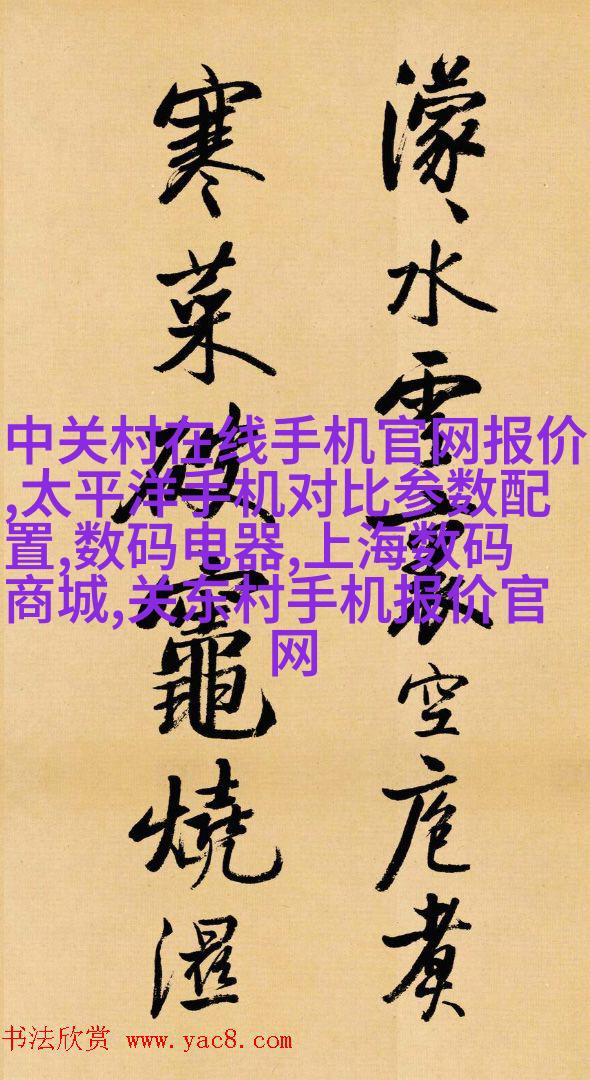 濛〻水雲裏空庖煮
寒菜破竈燒濕
中关村在线手机官网报价
,太平洋手机对比参数配
置,数码电器,上海数码
商城,关东村手机报价官
网
书法欣赏 www.yac8.com